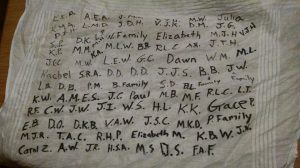 E.S.R. A.E.A. J.M. M.W. Julia
L.M.D. J.D.H. V.J.K. D.M. J.G.
D.K. H Family Elizabeth M.J.H
K.P. M.M. K.A. M.L.W. B.B. R.L.C. A.S. J.T.H.
J.C. M.W. L.E.W G.C. Dawn W.M. M.L.
Rachel S.R.A. D.D. D.D. J.J.S. B.B. J.W.
L.B. D.B. P.M. B.Family S.P. B.L. Family Family
K.W. A.M.E.S. J.C Paul M.B. M.F. R.L.C. L.T.
R.F. C.W. W.W. J.I. W.S. H.L K.K. Grace P.
E.B D.O. D.K.B. V.A.W. J.S.C. M.K.D. P.Family
M.J.R. T.A.C. R.H.P. Elizabeth M. K.B.W. J.N.
Carol Z. A.W. J.R. H.S.A. M.S D.S. F.A.F.